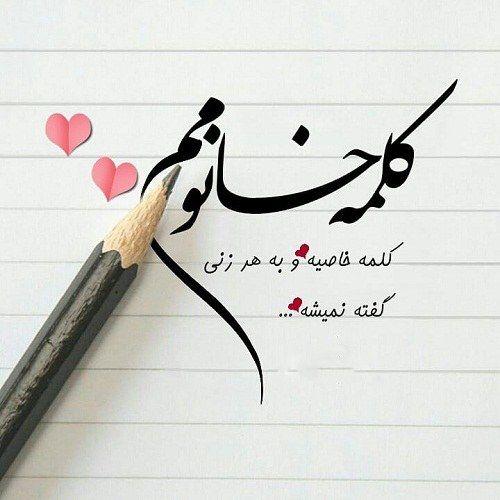 کلمه خانومم
کلمه خاصیه و به هر زنی
گفته نمیشه...